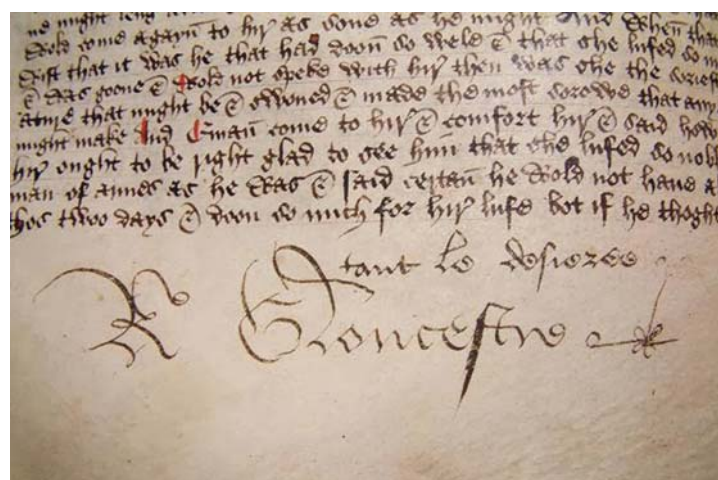 ne might leng
wold come agayn to hir as sone as he might And when that
wist that it was he that had doon so wele & that she lufed so m
& was goone & wold not speke with hir then was she the soriest
ature that might be & swoned & made the most sorowe that any
might make And Eman come to hir & comfort hir & said how
hir ought to be right glad to see him that she lufed so nobl
man of armes as he was & said certan he wold not have a
thos two days & doon so much for hir lufe bot if he thoght
tant le desieree
R Gloucestre